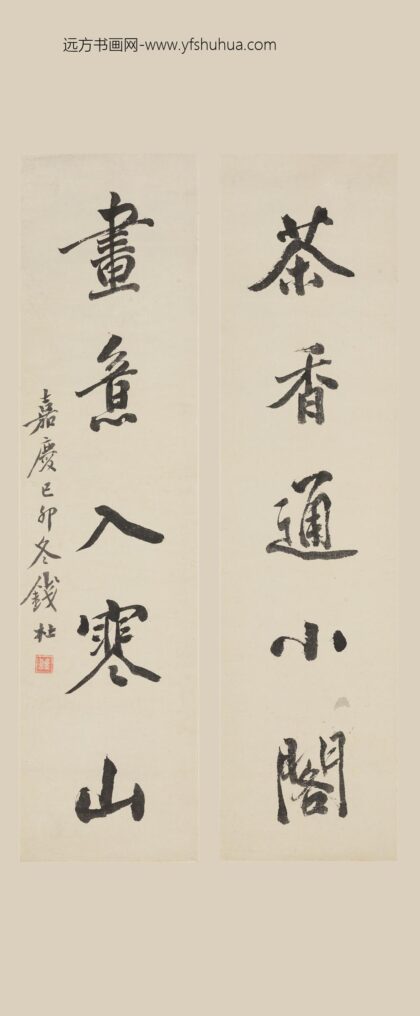 远方书画网-www.yfshuhua.com
茶香通小閣
畫意入寒山
嘉慶己卯冬錢杜